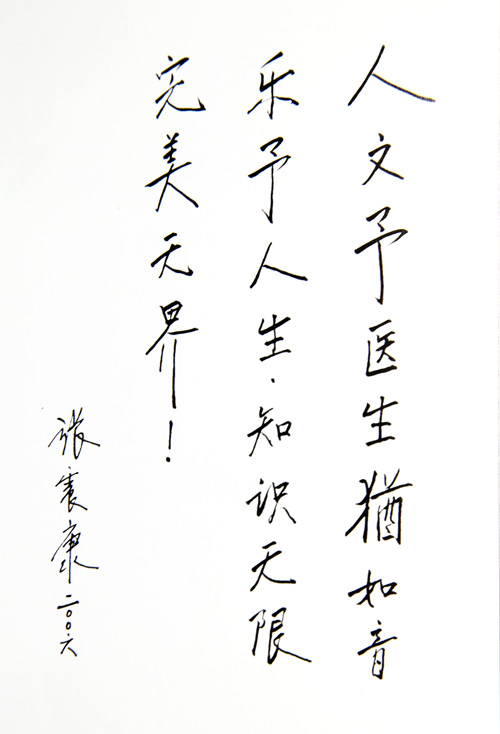 人文予医生犹如音
乐予人生·知识无限
完美无界！
张震康
二〇〇六